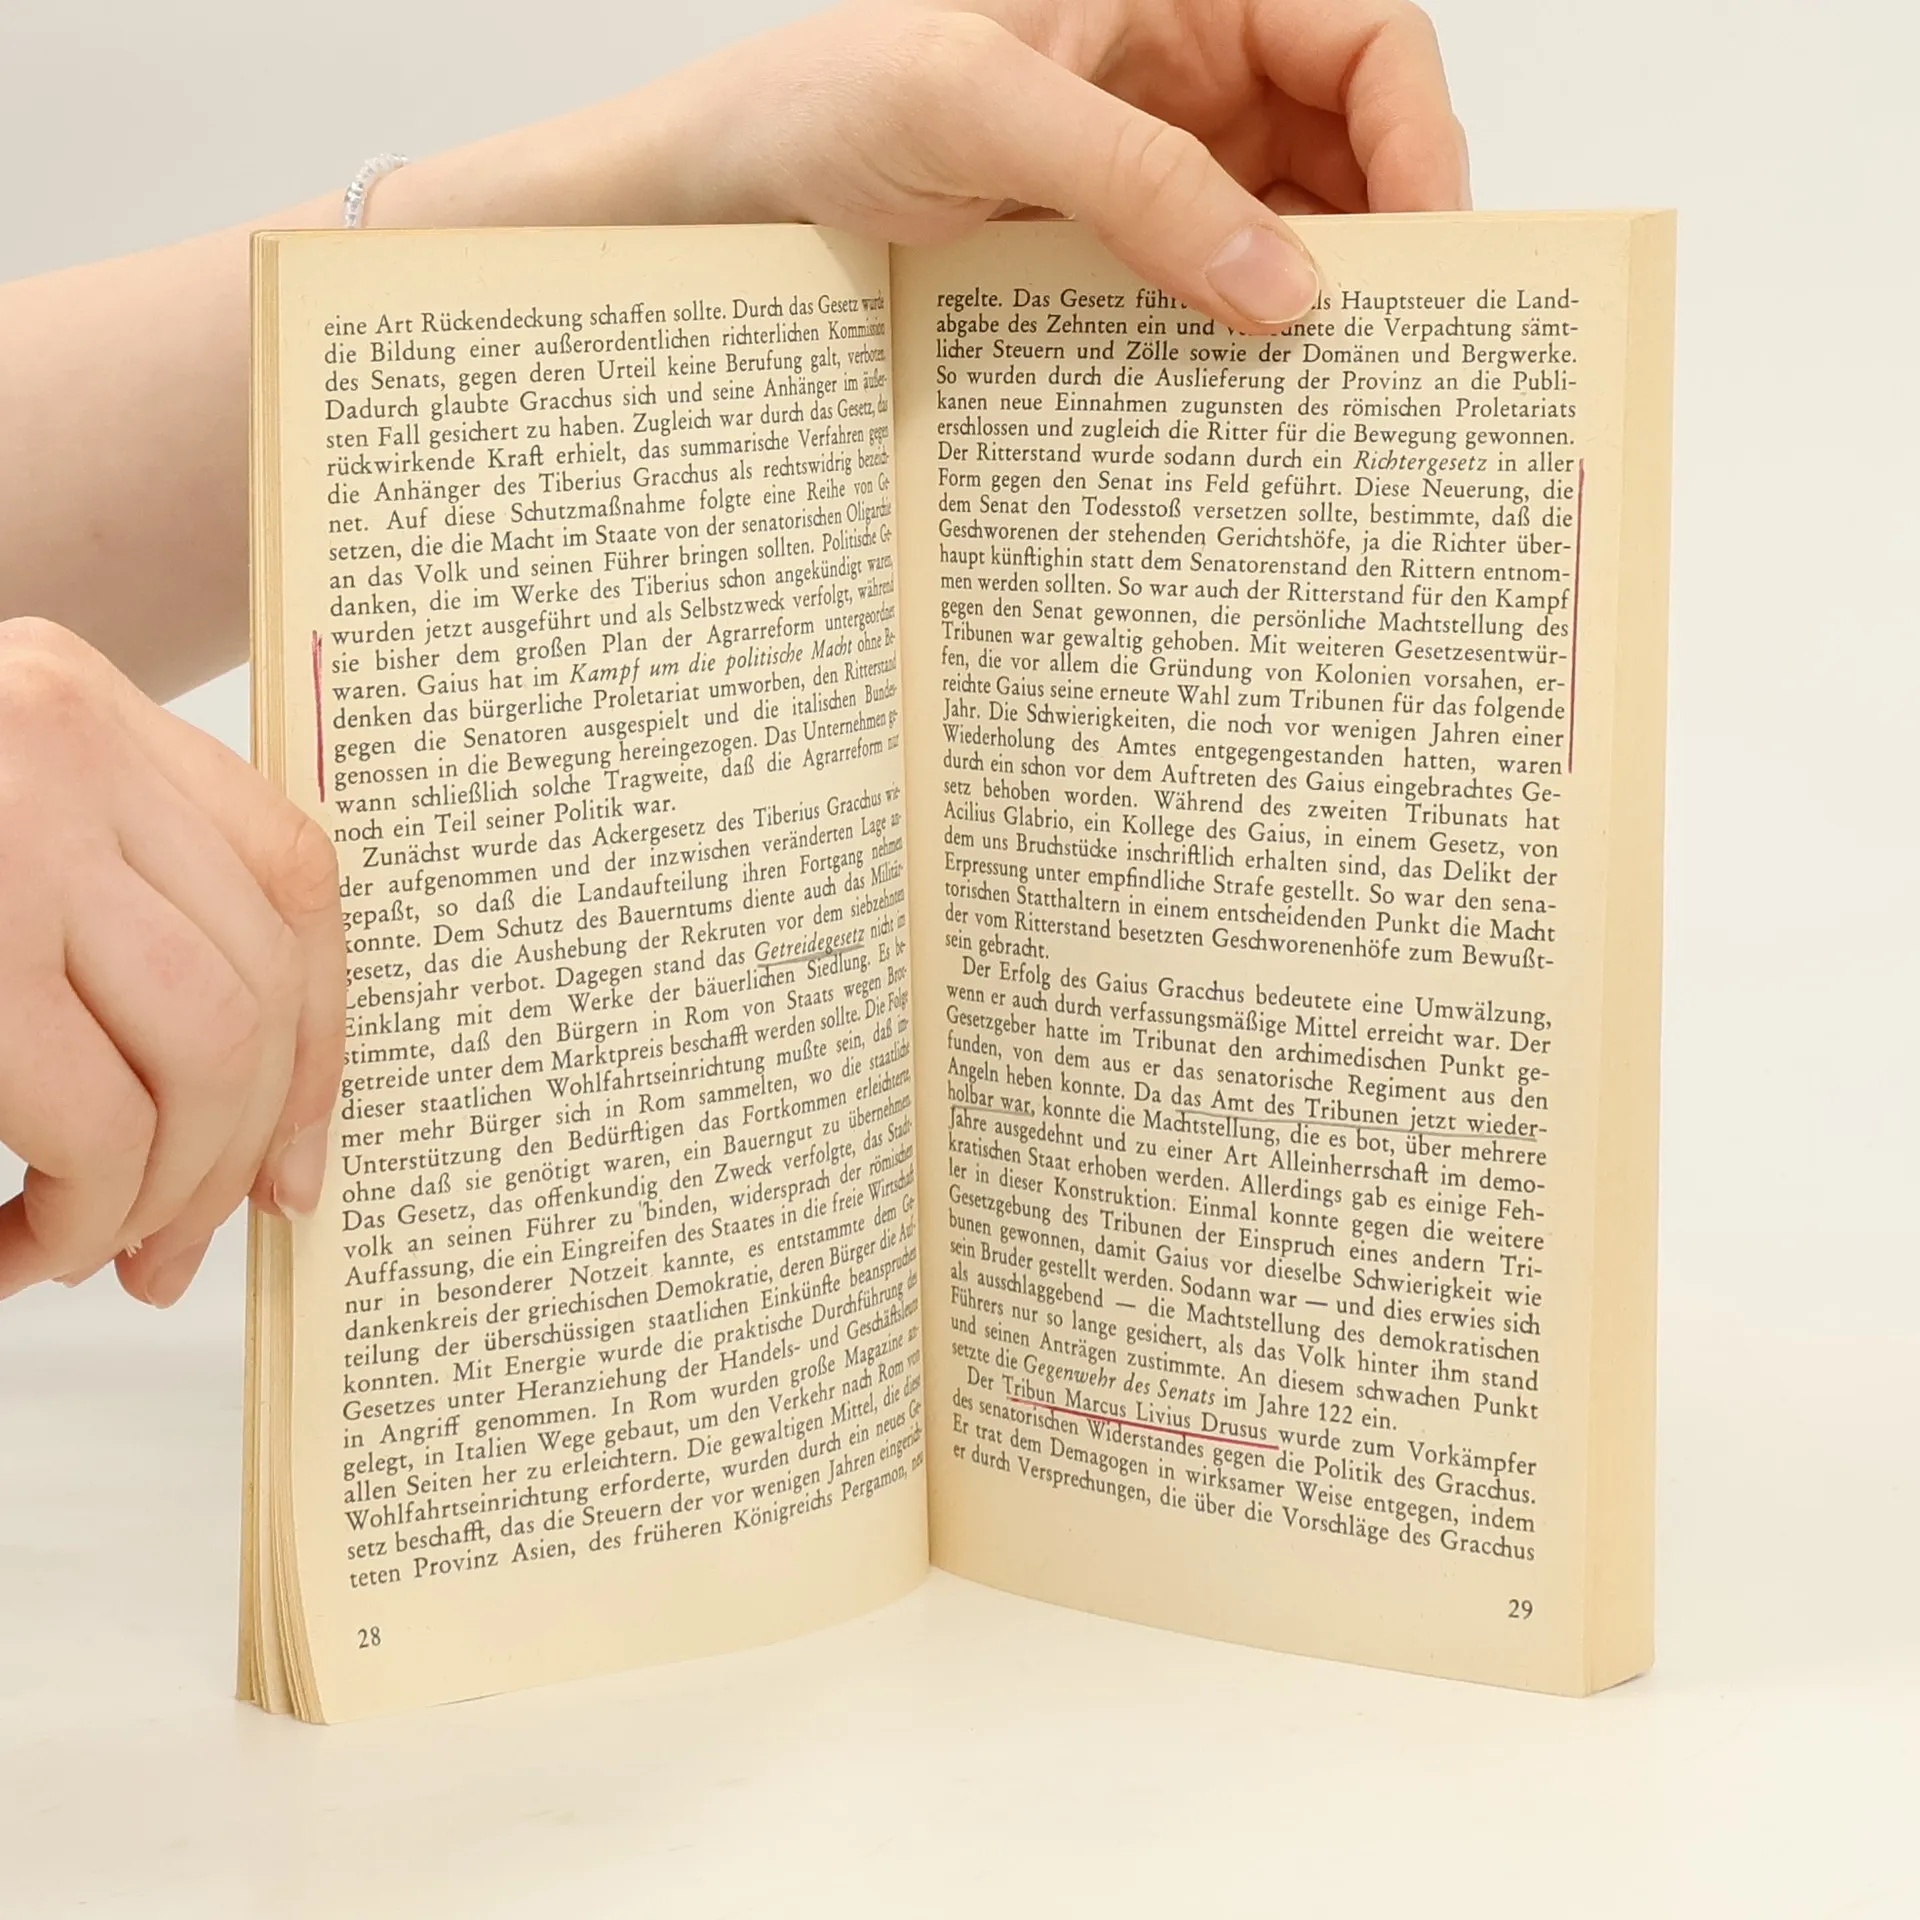 eine Art Rückendeckung schaffen sollte. Durch das Gesetz wurde
die Bildung einer außerordentlichen richterlichen Kommission
des Senats, gegen deren Urteil keine Berufung galt, verboten.
Dadurch glaubte Gracchus sich und seine Anhänger im äußer-
sten Fall gesichert zu haben. Zugleich war durch das Gesetz, das
rückwirkende Kraft erhielt, das summarische Verfahren gegen
die Anhänger des Tiberius Gracchus als rechtswidrig bezeich-
net. Auf diese Schutzmaßnahme folgte eine Reihe von Ge-
setzen, die die Macht im Staate von der senatorischen Oligarchie
an das Volk und seinen Führer bringen sollten. Politische Ge-
danken, die im Werke des Tiberius schon angekündigt waren,
wurden jetzt ausgeführt und als Selbstzweck verfolgt, während
sie bisher dem großen Plan der Agrarreform untergeordnet
waren. Gaius hat im Kampf um die politische Macht ohne Be-
denken das bürgerliche Proletariat umworben, den Ritterstand
gegen die Senatoren ausgespielt und die italischen Bundes-
genossen in die Bewegung hereingezogen. Das Unternehmen ge-
wann schließlich solche Tragweite, daß die Agrarreform nur
noch ein Teil seiner Politik war.
Zunächst wurde das Ackergesetz des Tiberius Gracchus wie-
der aufgenommen und der inzwischen veränderten Lage an-
gepaßt, so daß die Landaufteilung ihren Fortgang nehmen
konnte. Dem Schutz des Bauerntums diente auch das Militär-
gesetz, das die Aushebung der Rekruten vor dem siebzehnten
Lebensjahr verbot. Dagegen stand das Getreidegesetz nicht im
Einklang mit dem Werke der bäuerlichen Siedlung. Es be-
stimmte, daß den Bürgern in Rom von Staats wegen Brot-
getreide unter dem Marktpreis beschafft werden sollte. Die Folge
dieser staatlichen Wohlfahrtseinrichtung mußte sein, daß im-
mer mehr Bürger sich in Rom sammelten, wo die staatliche
Unterstützung den Bedürftigen das Fortkommen erleichterte,
ohne daß sie genötigt waren, ein Bauerngut zu übernehmen.
Das Gesetz, das offenkundig den Zweck verfolgte, das Stadt-
volk an seinen Führer zu binden, widersprach der römischen
Auffassung, die ein Eingreifen des Staates in die freie Wirtschaft
nur in besonderer Notzeit kannte, es entstammte dem Ge-
dankenkreis der griechischen Demokratie, deren Bürger die Auf-
teilung der überschüssigen staatlichen Einkünfte beanspruchen
konnten. Mit Energie wurde die praktische Durchführung des
Gesetzes unter Heranziehung der Handels- und Geschäftsleute
in Angriff genommen. In Rom wurden große Magazine an-
gelegt, in Italien Wege gebaut, um den Verkehr nach Rom von
allen Seiten her zu erleichtern. Die gewaltigen Mittel, die diese
Wohlfahrtseinrichtung erforderte, wurden durch ein neues Ge-
setz beschafft, das die Steuern der vor wenigen Jahren eingerich-
teten Provinz Asien, des früheren Königreichs Pergamon, neu
28
regelte. Das Gesetz Hauptsteuer die Land-
abgabe des Zehnten ein und die Verpachtung sämt-
licher Steuern und Zölle sowie der Domänen und Bergwerke.
So wurden durch die Auslieferung der Provinz an die Publi-
kanen neue Einnahmen zugunsten des römischen Proletariats
erschlossen und zugleich die Ritter für die Bewegung gewonnen.
Der Ritterstand wurde sodann durch ein Richtergesetz in aller
Form gegen den Senat ins Feld geführt. Diese Neuerung, die
dem Senat den Todesstoß versetzen sollte, bestimmte, daß die
Geschworenen der stehenden Gerichtshöfe, ja die Richter über-
haupt künftighin statt dem Senatorenstand den Rittern entnom-
men werden sollten. So war auch der Ritterstand für den Kampf
gegen den Senat gewonnen, die persönliche Machtstellung des
Tribunen war gewaltig gehoben. Mit weiteren Gesetzesentwür-
fen, die vor allem die Gründung von Kolonien vorsahen, er-
reichte Gaius seine erneute Wahl zum Tribunen für das folgende
Jahr. Die Schwierigkeiten, die noch vor wenigen Jahren einer
Wiederholung des Amtes entgegengestanden hatten, waren
durch ein schon vor dem Auftreten des Gaius eingebrachtes Ge-
setz behoben worden. Während des zweiten Tribunats hat
Acilius Glabrio, ein Kollege des Gaius, in einem Gesetz, von
dem uns Bruchstücke inschriftlich erhalten sind, das Delikt der
Erpressung unter empfindliche Strafe gestellt. So war den sena-
torischen Statthaltern in einem entscheidenden Punkt die Macht
der vom Ritterstand besetzten Geschworenenhöfe zum Bewußt-
sein gebracht.
Der Erfolg des Gaius Gracchus bedeutete eine Umwälzung,
wenn er auch durch verfassungsmäßige Mittel erreicht war. Der
Gesetzgeber hatte im Tribunat den archimedischen Punkt ge-
funden, von dem aus er das senatorische Regiment aus den
Angeln heben konnte. Da das Amt des Tribunen jetzt wieder-
holbar war, konnte die Machtstellung, die es bot, über mehrere
Jahre ausgedehnt und zu einer Art Alleinherrschaft im demo-
kratischen Staat erhoben werden. Allerdings gab es einige Feh-
ler in dieser Konstruktion. Einmal konnte gegen die weitere
Gesetzgebung des Tribunen der Einspruch eines andern Tri-
bunen gewonnen, damit Gaius vor dieselbe Schwierigkeit wie
sein Bruder gestellt werden. Sodann war — und dies erwies sich
als ausschlaggebend — die Machtstellung des demokratischen
Führers nur so lange gesichert, als das Volk hinter ihm stand
und seinen Anträgen zustimmte. An diesem schwachen Punkt
setzte die Gegenwehr des Senats im Jahre 122 ein.
Der Tribun Marcus Livius Drusus wurde zum Vorkämpfer
des senatorischen Widerstandes gegen die Politik des Gracchus.
Er trat dem Demagogen in wirksamer Weise entgegen, indem
er durch Versprechungen, die über die Vorschläge des Gracchus
29